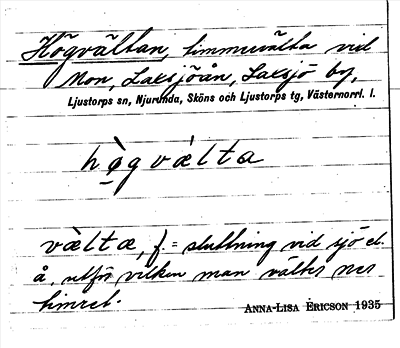 Högvältan, timmervälta vid
Mon, Laxsjöån, Laxsjö by,
Ljustorps sn, Njurunda, Sköns och Ljustorps tg, Västernorrl. l.
hø̀gvæ̀lta
væ̀ltæ, f. = sluttning vid sjö el.
å, utför vilken man välter ner
timret.
ANNA-LISA ERICSON 1935